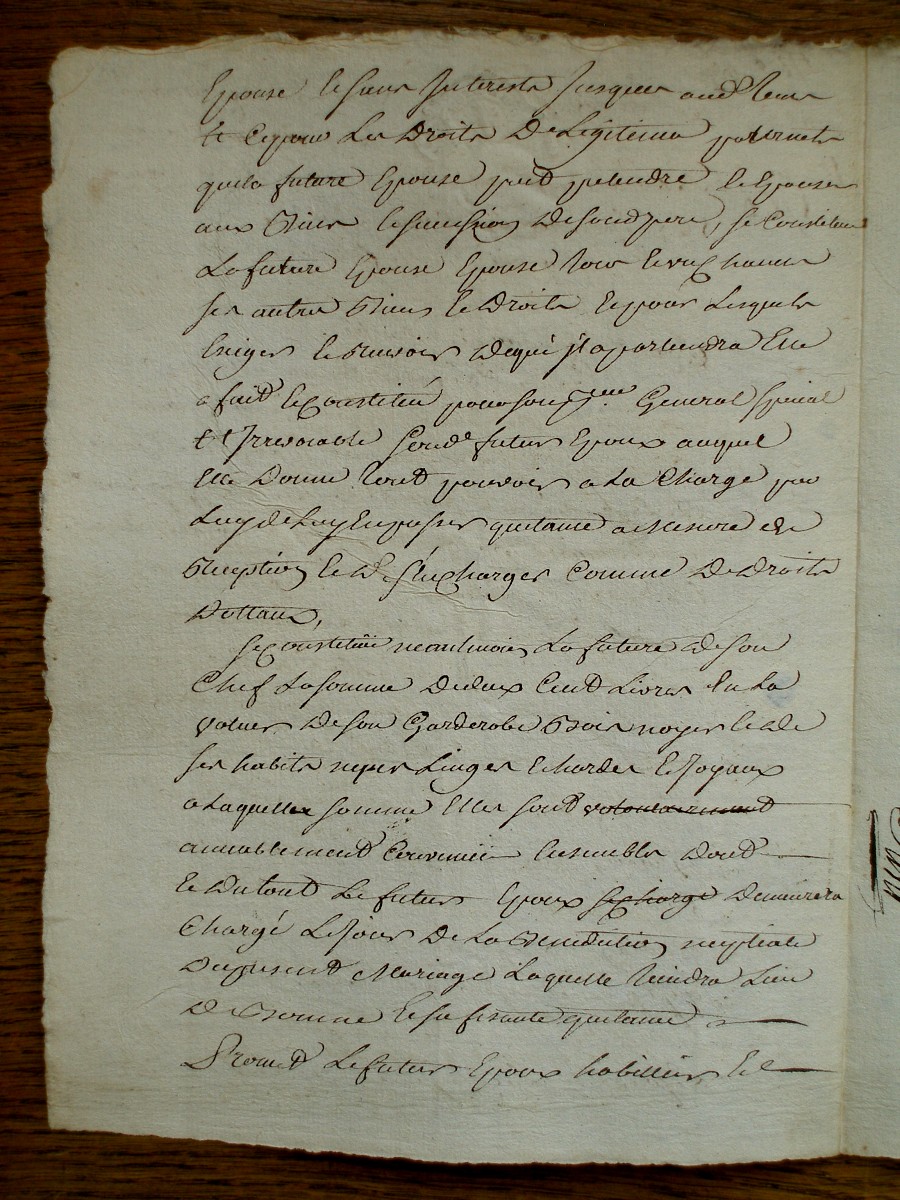 Epouse le sieurs Interests Jusques aud. tems
et Ce pour Les Droits De Legitime paternels
que la future Epouse peut pretendre Et Epouser
aux Biens Et succession De son d pere, se Constitue
La future Epouse Epouse tous
ses autres Biens Et Droits Et pour Lesquels
Exiger Et recevoir De qui jl apartiendra Elle
a fait Et Constitué pour son General special
Et Irrevocable Led. futur Epoux auquel
Elle Donne tout pouvoir a La Charge par
Luy de Luy En passer quitance a mesure de
Reception Et de Les Charger Comme De Droits
Dottaux,
Se Constitüe neantmoins La future De son
Chef La somme De deux Cent Livres En La
valeur De son Garderobe Bois noyer Et de
ses habits Linges Et hardes Et Joyaux
a Laquelle somme Elles sont volontairement
amiablement Convenüe Ensemble Dont
Et Du tout Le futur Epoux se charge Demeurera
Chargé Le Jour De La Benediction nuptiale
Du present Mariage Laquelle tiendra Lieu
De Bonne Et sufisante quitance
Promet Le futur Epoux habiller Et